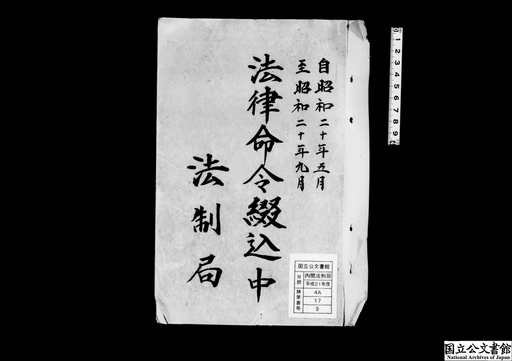 自昭和二十年五月
至昭和二十年九月
法律命令綴込中
法制局
国立公文書館
分類
内閣法制局
平成21年度
排架番号
4A
17
5
1 2 3 4 5 6 7 8 9
国立公文書館
National Archives of Japan